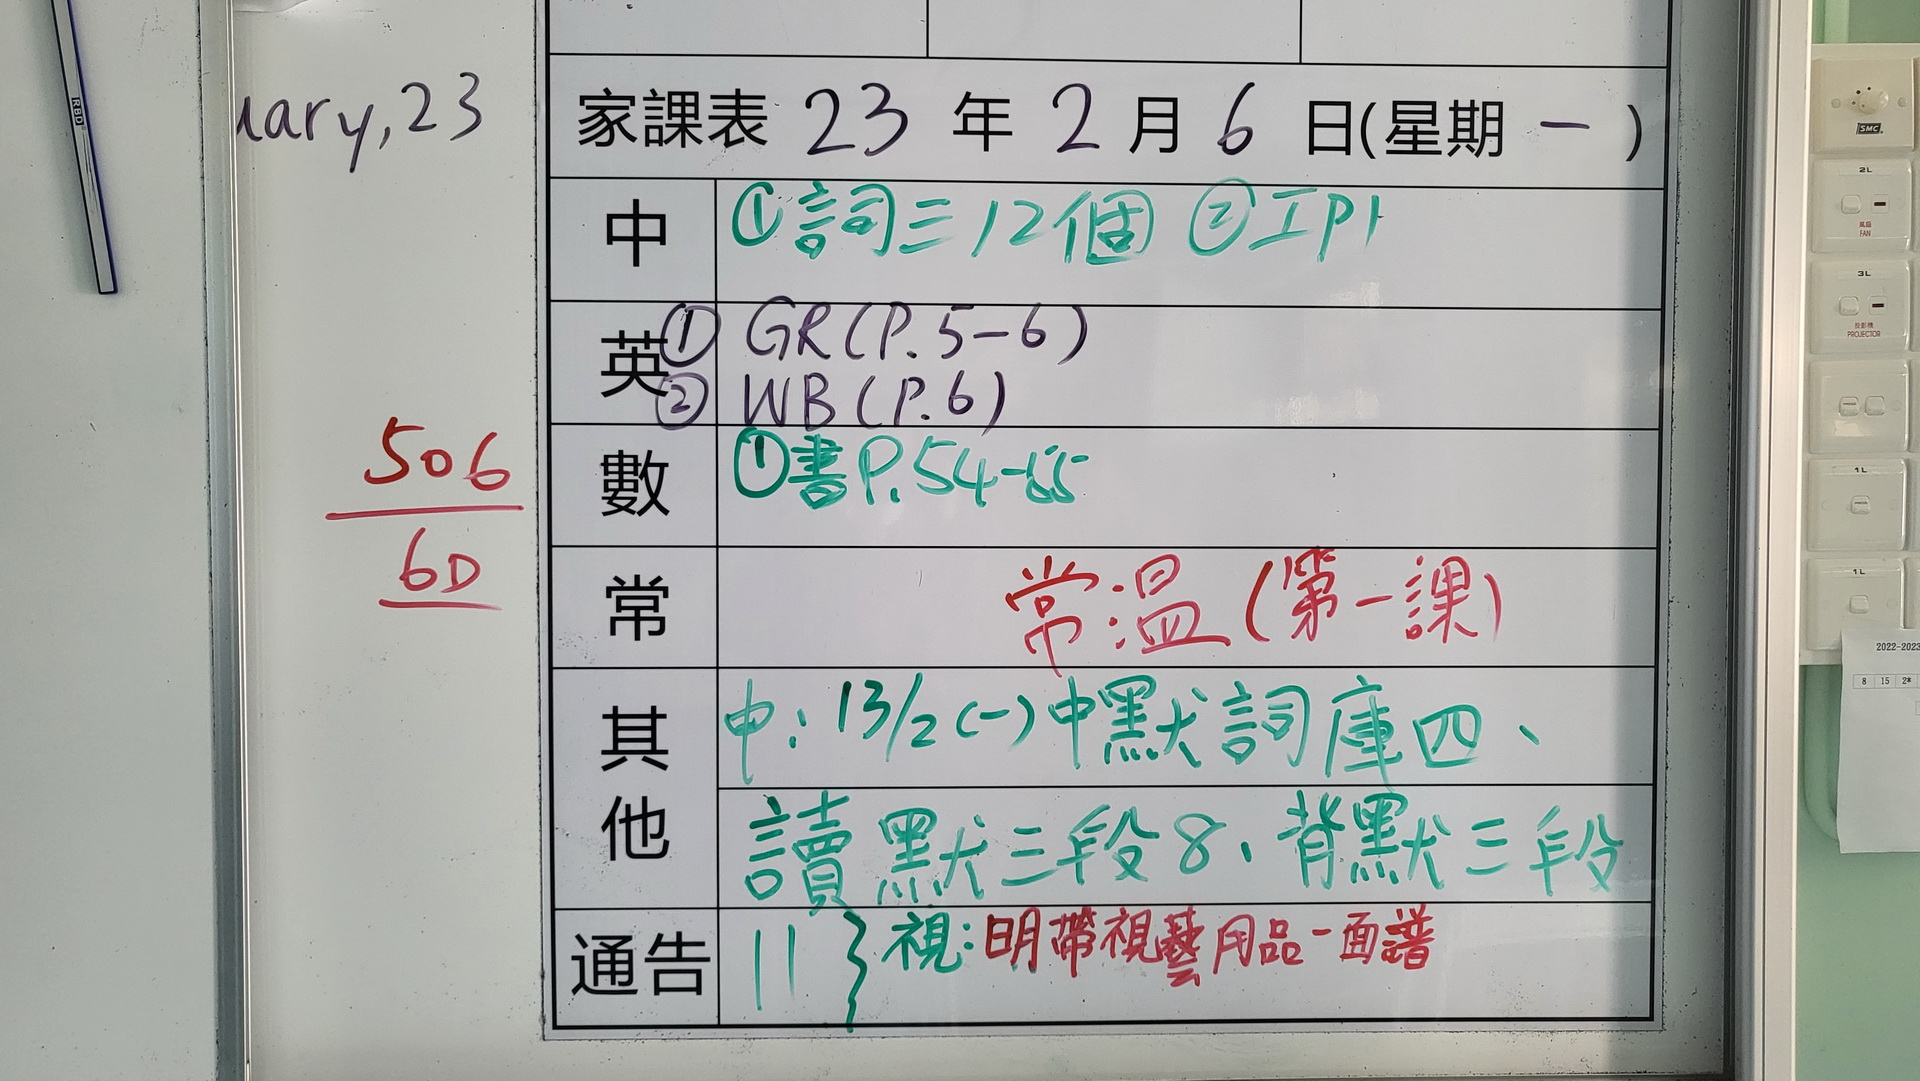 RBD
uary, 23
家課表 23 年 2 月 6 日(星期 一 )
中 ①詞三12個 ②工P1
英 ① GR (P.5-6)
② WB (P.6)
506
6D
數 ①書P.54-55
常 常温(第一課)
其他 中:13/2(一)中默詞庫四、
讀默三段8、背默三段
通告 11 } 視:明帶視藝用品-面譜
SMC
2L
風扇
FAN
3L
投影機
PROJECTOR
1L
1L
2022-2023
8 15 2*